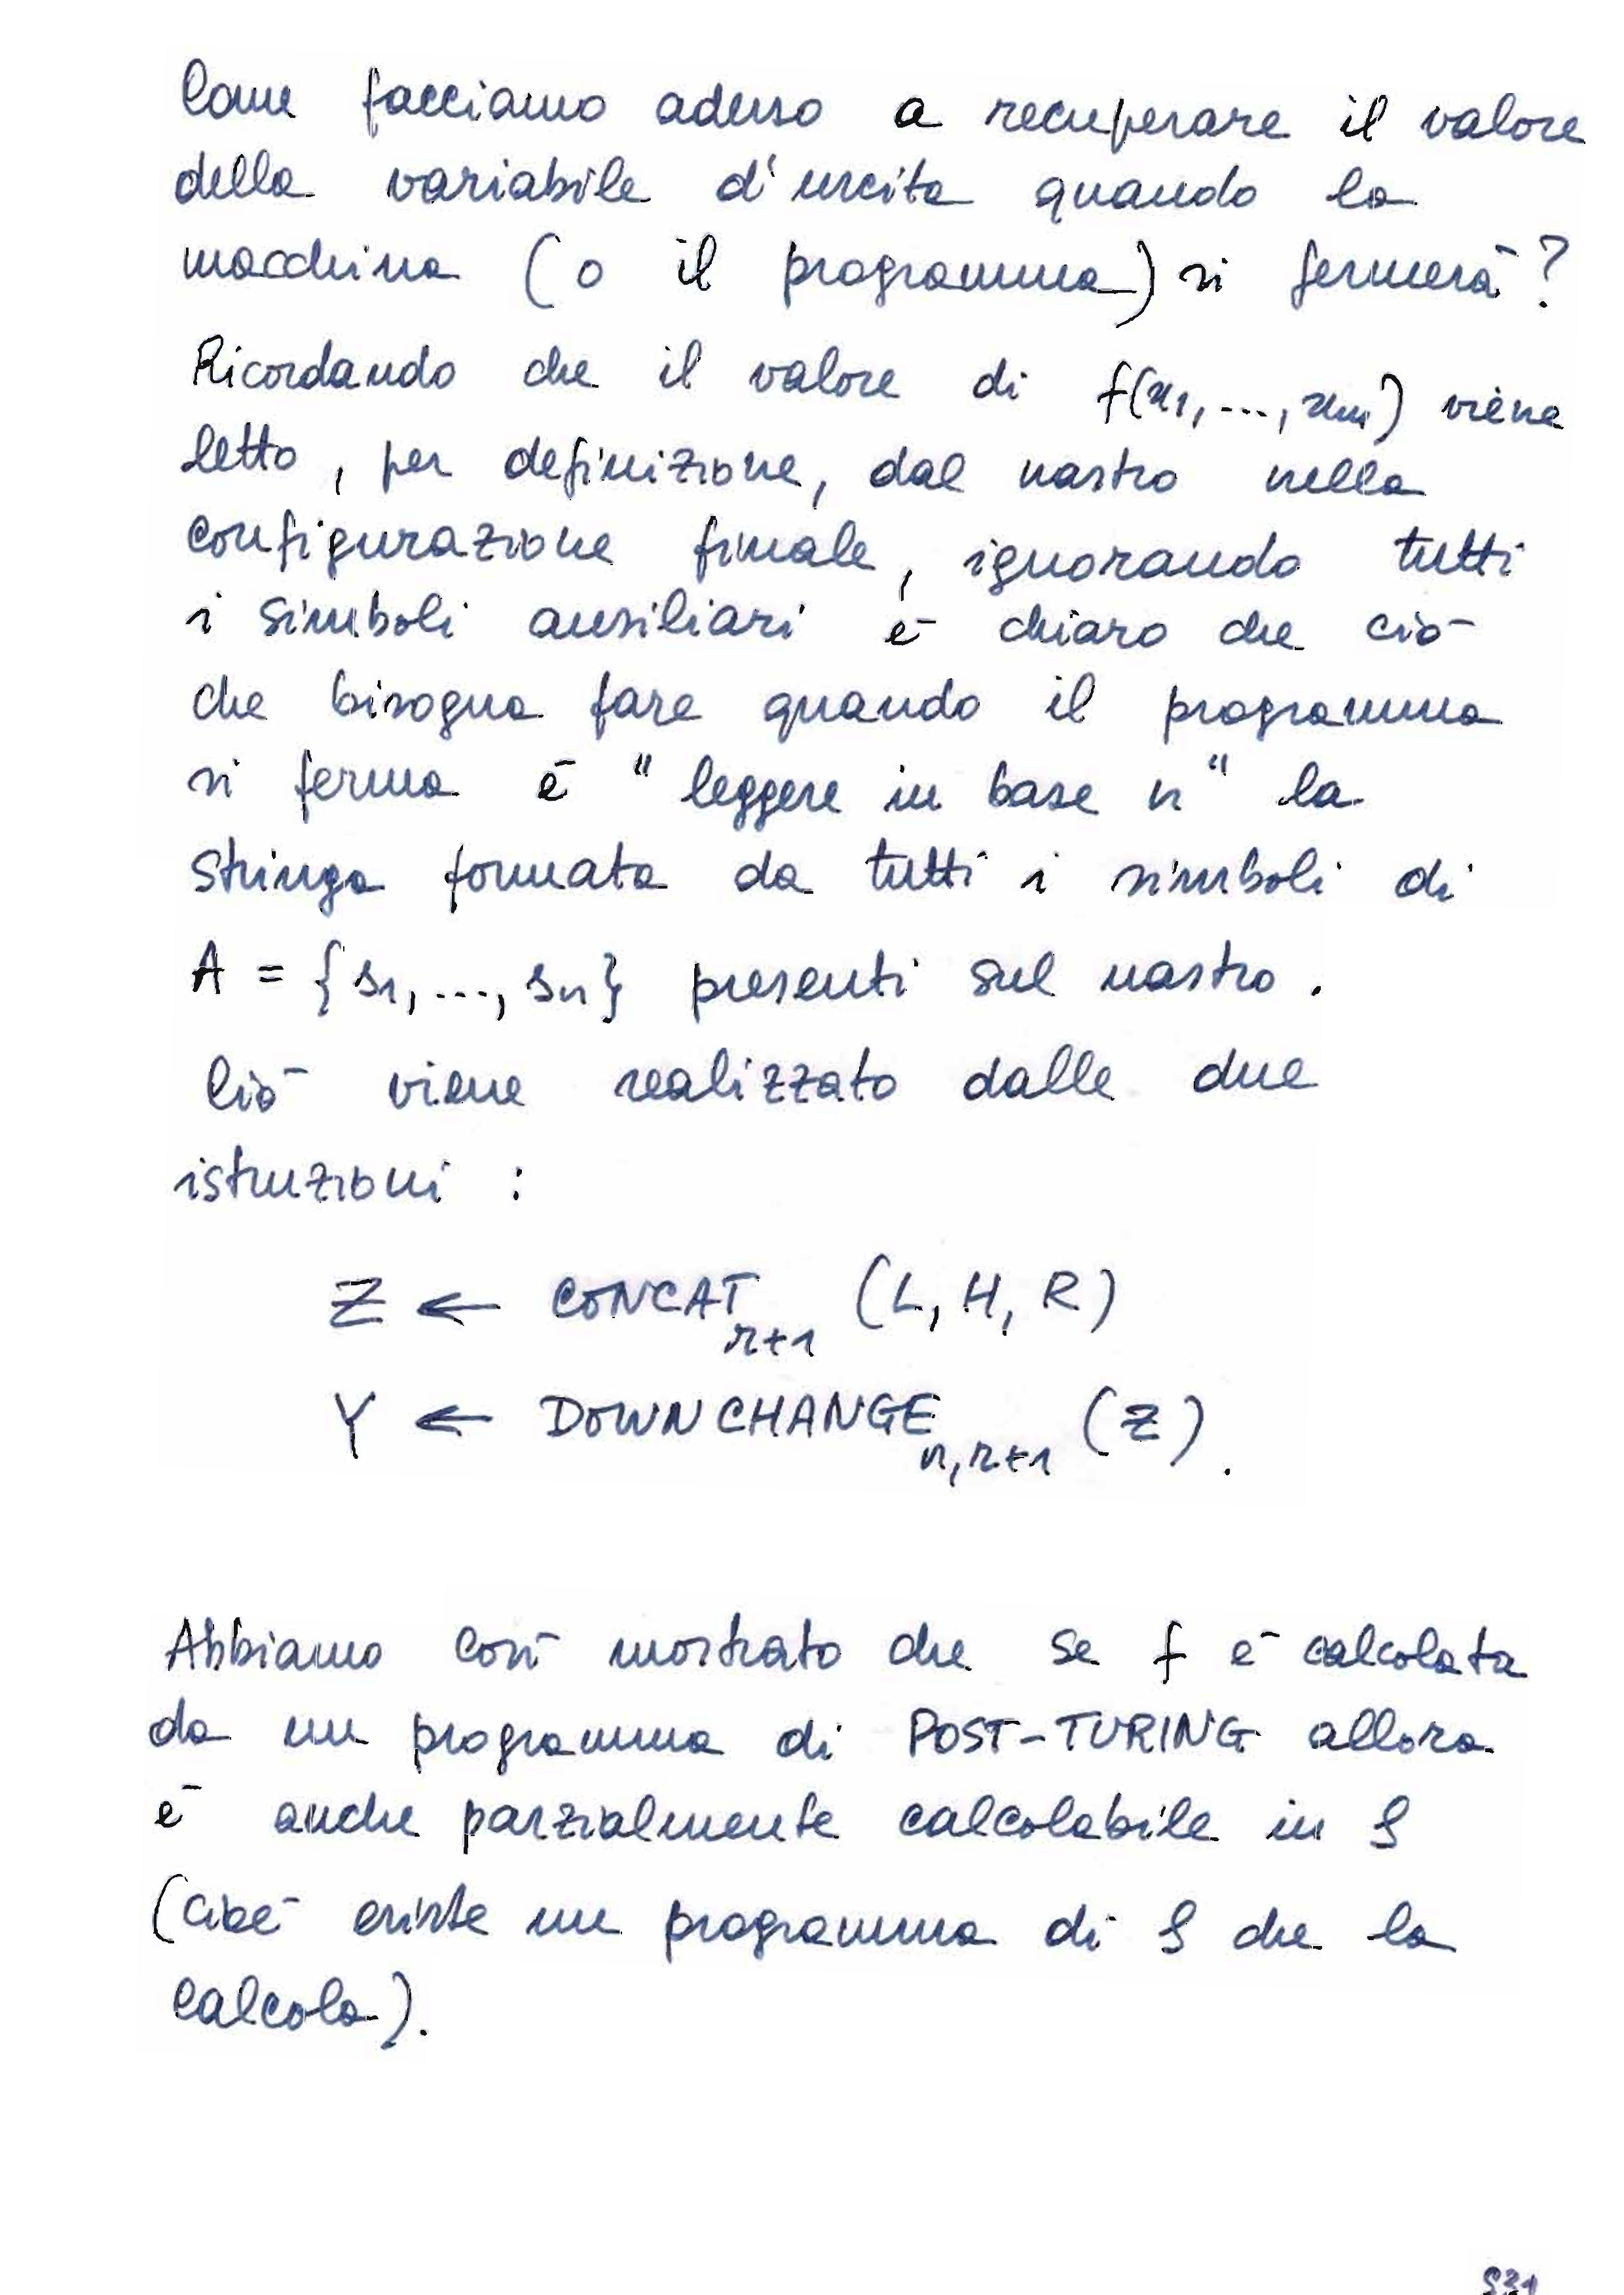 Come facciamo adesso a recuperare il valore
della variabile d'uscita quando la
macchina (o il programma) si fermerà?
Ricordando che il valore di f(x₁, ..., xₘ) viene
letto, per definizione, dal nastro nella
configurazione finale, ignorando tutti
i simboli ausiliari è chiaro che ciò
che bisogna fare quando il programma
si ferma è "leggere in base n" la
stringa formata da tutti i simboli di
A = {s₁, ..., sₙ} presenti sul nastro.
Ciò viene realizzato dalle due
istruzioni :
Z ← CONCAT_{r+1} (L, H, R)
Y ← DOWNCHANGE_{n,r+1} (Z).
Abbiamo così mostrato che se f è calcolata
da un programma di POST-TURING allora
è anche parzialmente calcolabile in S
(cioè esiste un programma di S che la
calcola).